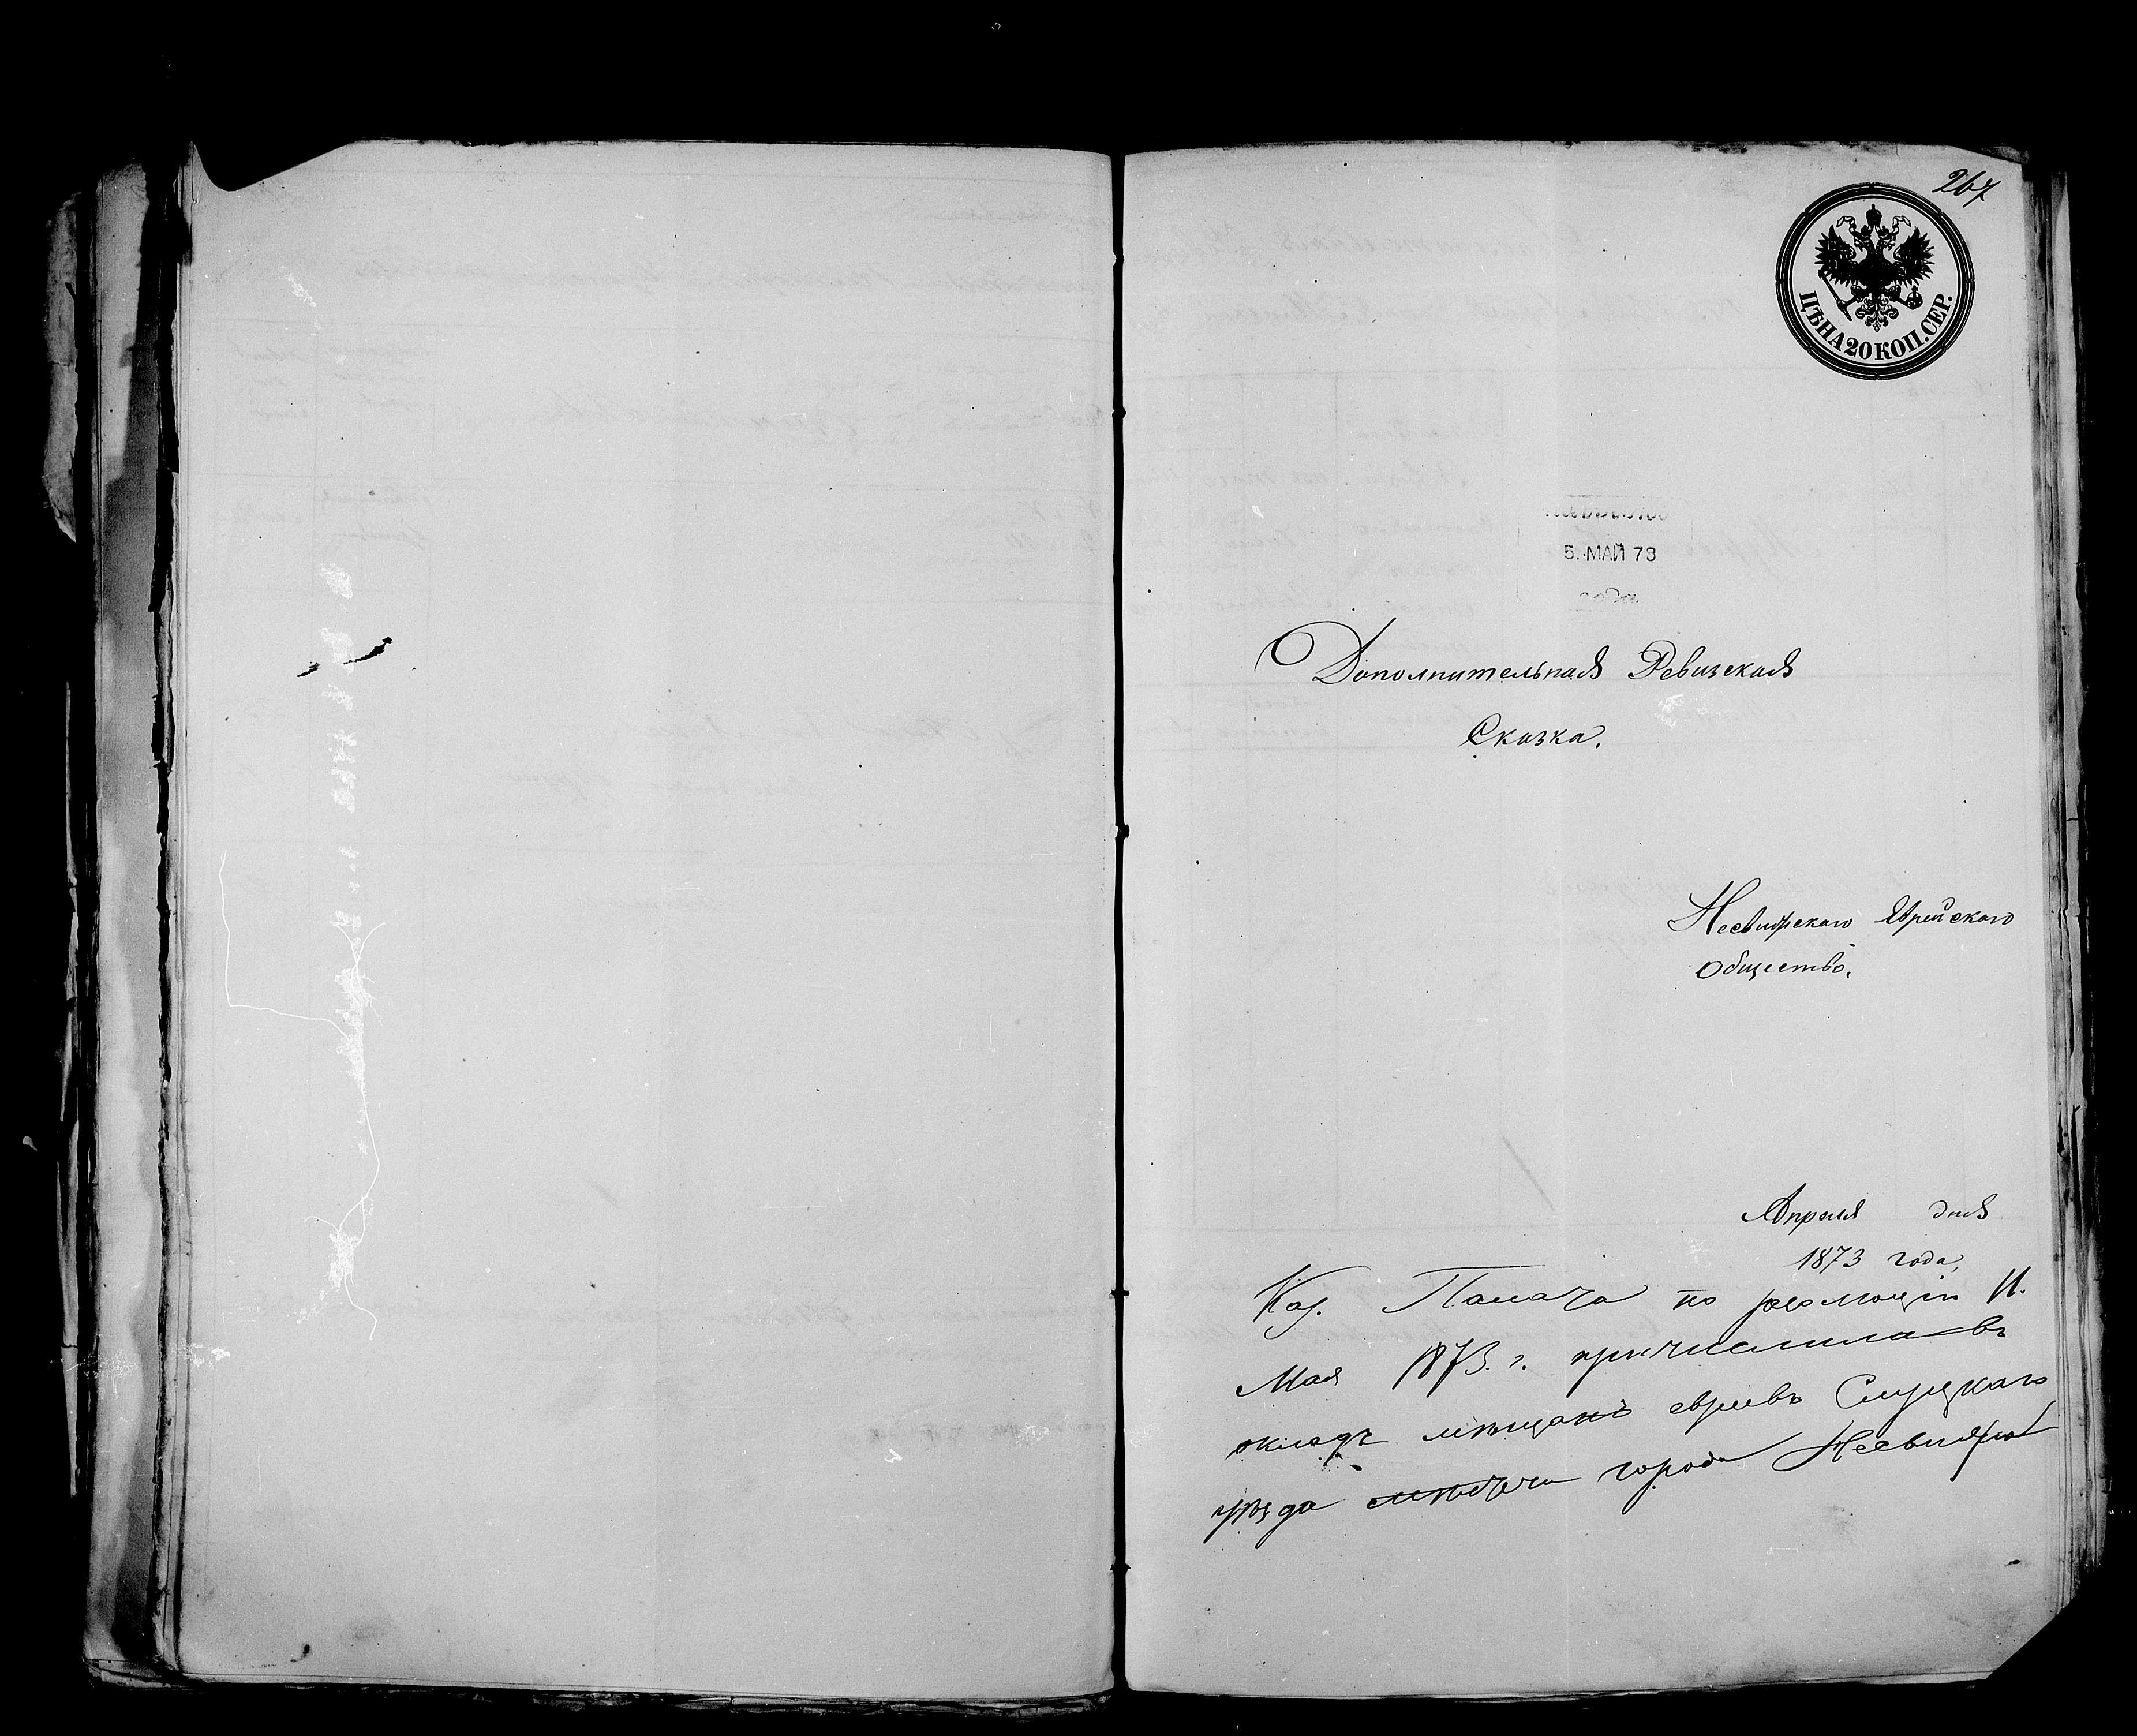 267
ЦѢНА 20 КОП. СЕР.
5. МАЙ 73
года
Дополнительная Ревизская
Сказка.
Несвижскаго Еврейскаго
Общества.
Апреля дня
1873 года,
Каз. Палата по резолюціи 11.
Мая 1873. г. причислила въ
окладъ мѣщанъ евреевъ Слуцкаго
уѣзда мѣстечка города Несвижа